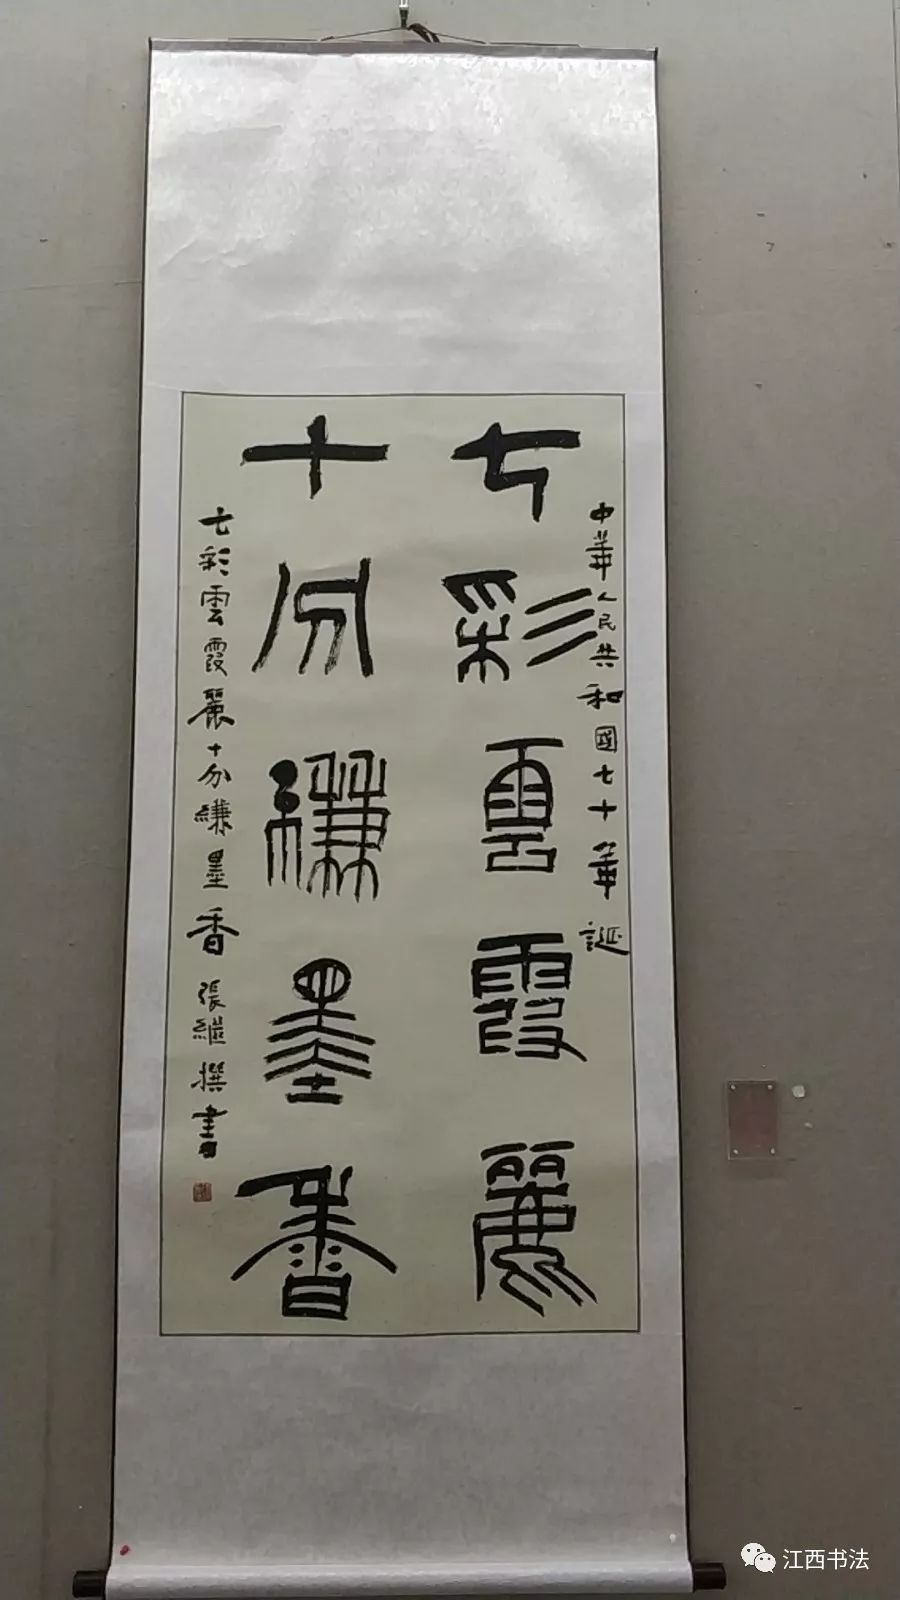 中華人民共和國七十華誕
七彩雲霞麗
十分縑墨香
七彩雲霞麗十分縑墨香張継撰書
江西书法